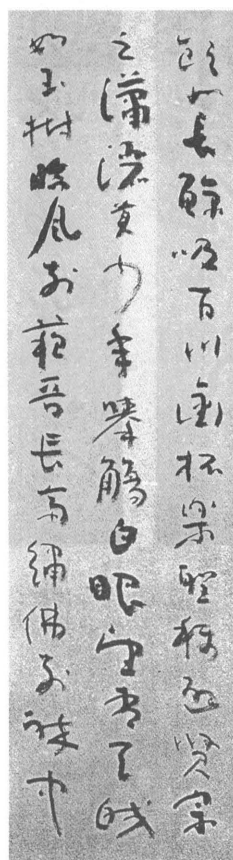 飲如長鯨吸百川衔杯樂聖稱避賢宗
之瀟灑美少年舉觴白眼望青天皎
如玉樹臨風前蘇晉長齋繡佛前醉中